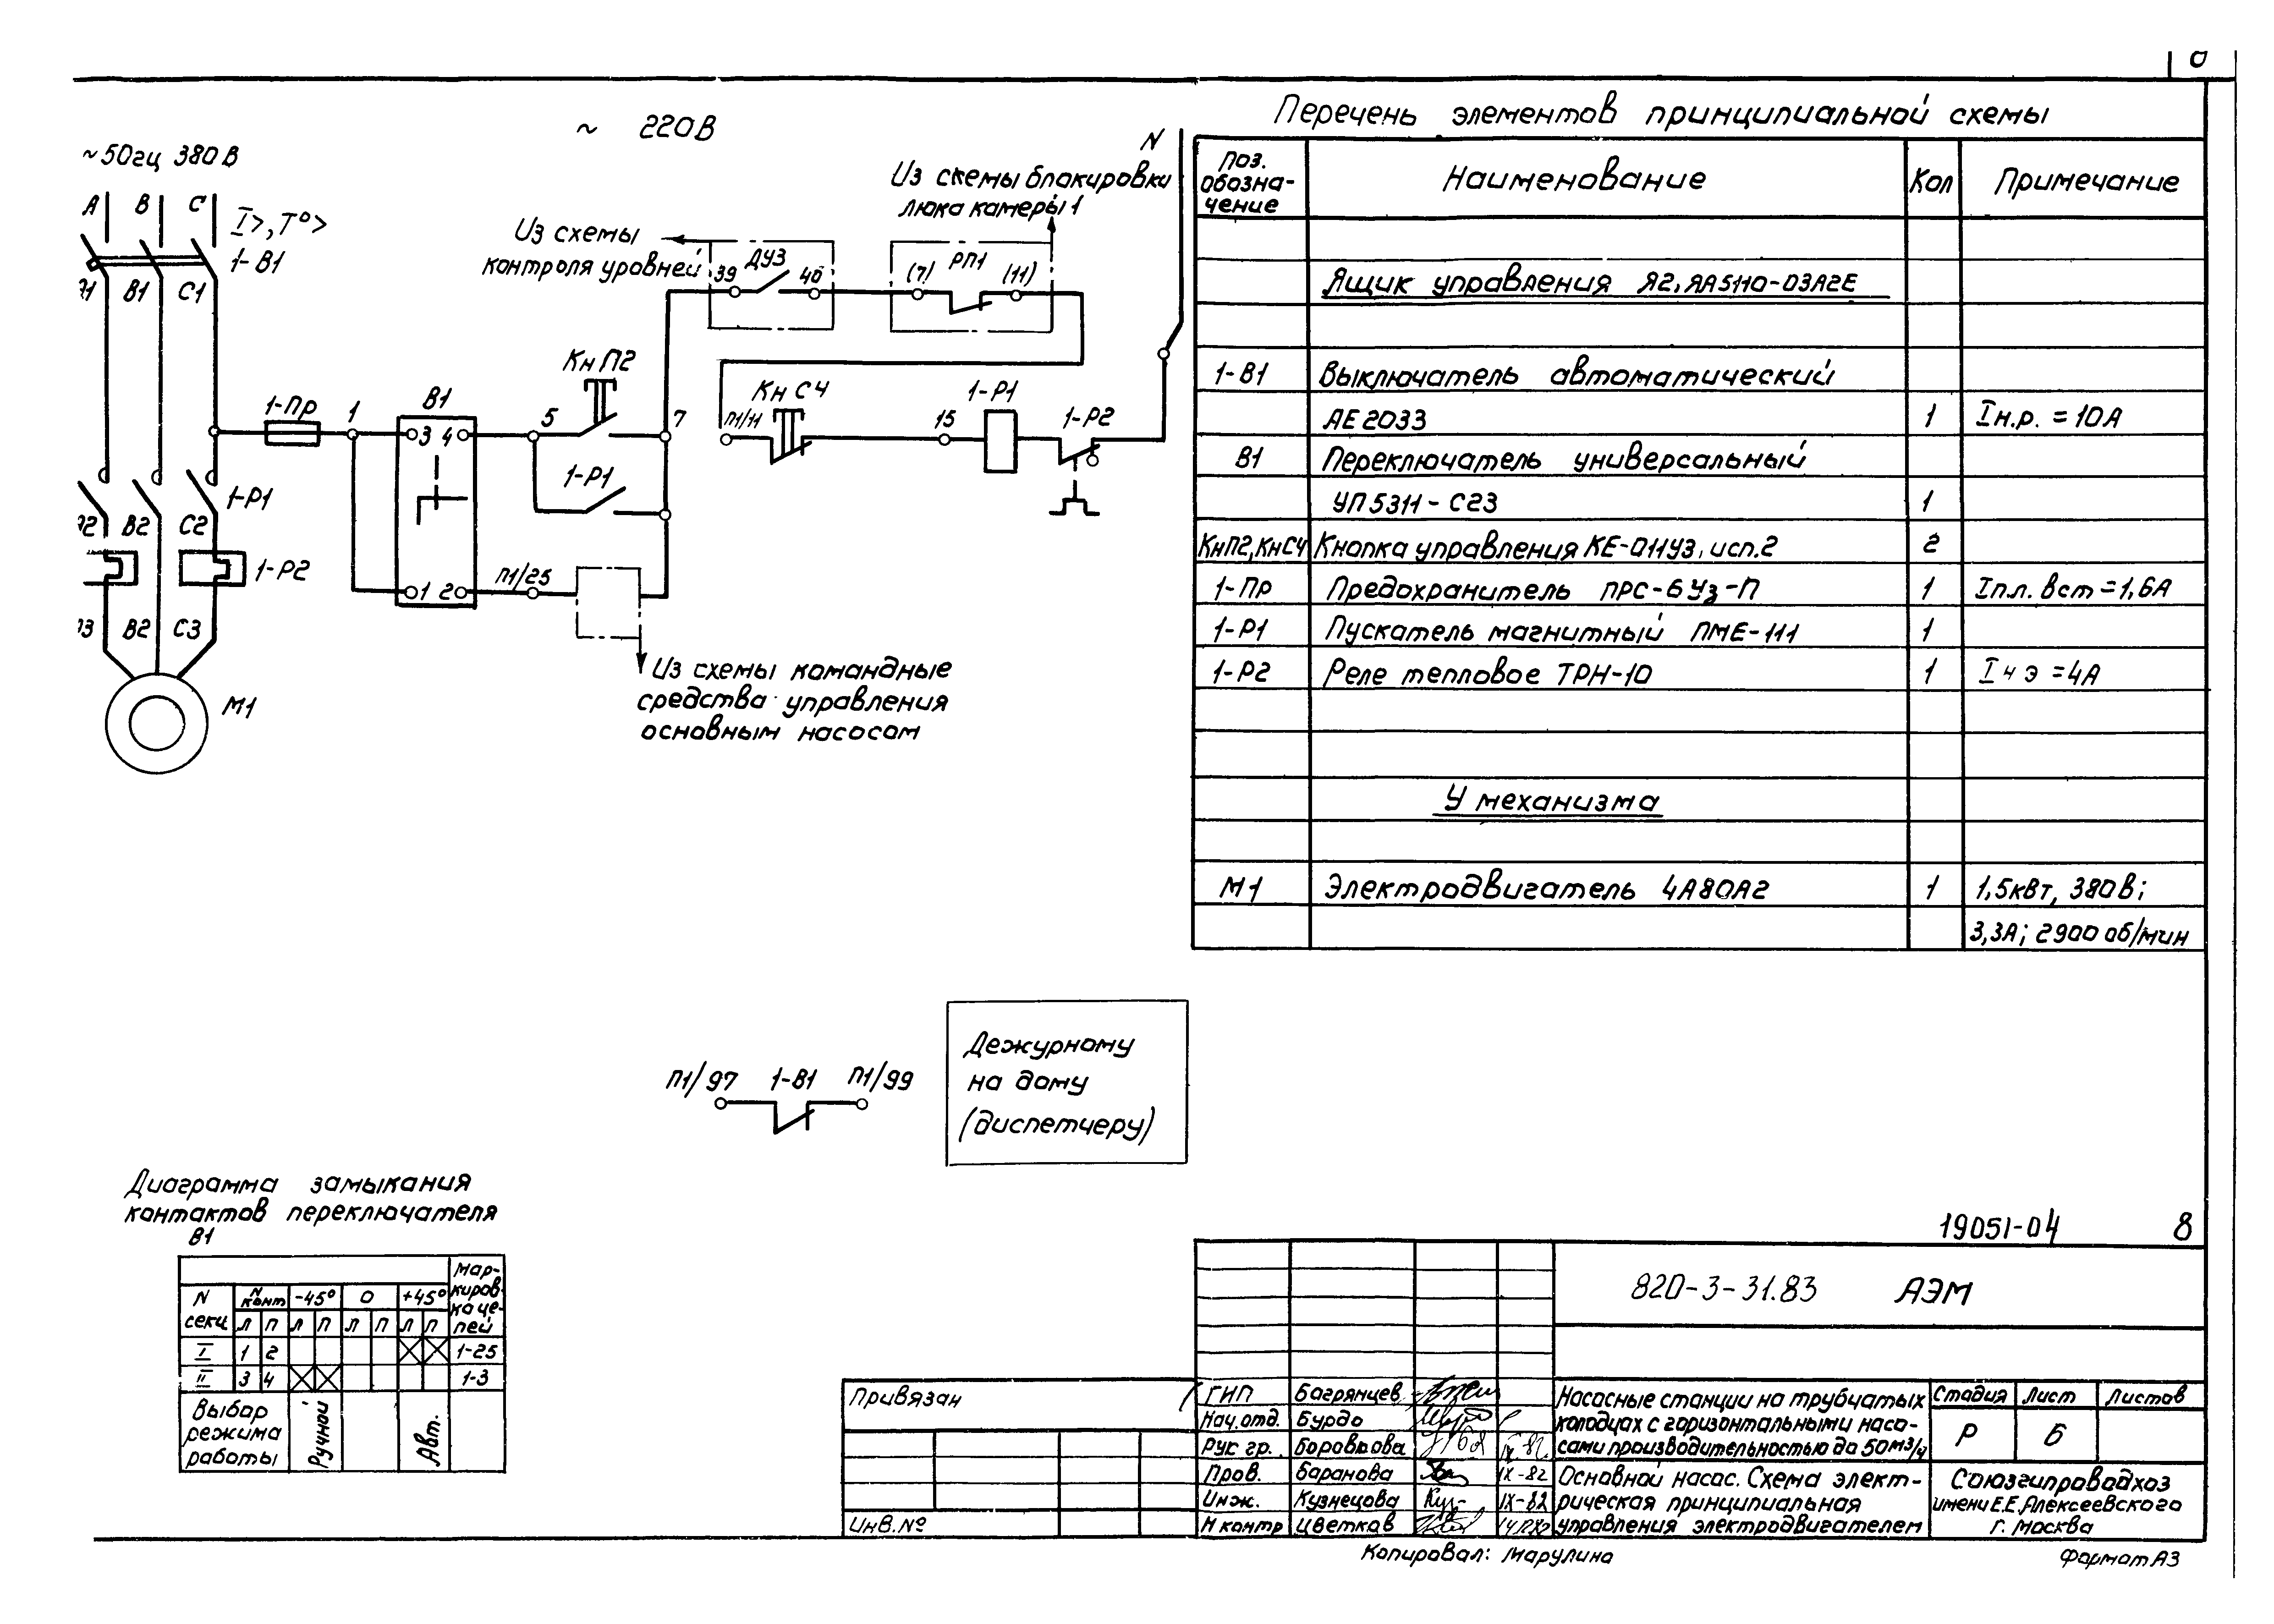 ~ 220В
~50гц 380В
А В С
I>, Т°>
1-В1
В1 С1
1-Пр
1
В1
3 4
1 2
5
Кн П2
7
1-Р1
П1/25
Из схемы
контроля уровней
39 ДУЗ 40
Из схемы блокировки
люка камеры 1
(7) РП1 (11)
N
П1/11
Кн С4
15
1-Р1
1-Р2
1-Р1
В2 С2
1-Р2
В2 С3
М1
Из схемы командные
средства управления
основным насосом
Перечень элементов принципиальной схемы
Поз. обозна-чение Наименование Кол Примечание
Ящик управления Я2, ЯА5110-03А2Е
1-В1 Выключатель автоматический
АЕ2033 1 Iн.р. = 10А
В1 Переключатель универсальный
УП5311-С23 1
КнП2,КнС4 Кнопка управления КЕ-011У3, исп.2 2
1-Пр Предохранитель ПРС-6У3-П 1 Iпл. вст = 1,6А
1-Р1 Пускатель магнитный ПМЕ-111 1
1-Р2 Реле тепловое ТРН-10 1 I ч э = 4А
У механизма
М1 Электродвигатель 4А80А2 1 1,5кВт, 380В;
3,3А; 2900 об/мин
П1/97 1-В1 П1/99
Дежурному
на дому
(диспетчеру)
Диаграмма замыкания
контактов переключателя
В1
N секц. N конт -45° 0 +45° Мар-кировка це-пей
Л П Л П Л П Л П
I 1 2 1-25
II 3 4 1-3
Выбор
режима
работы
Ручной
Авт.
19051-04 8
820-3-31.83 АЭМ
Привязан
Инв.№
ГИП Багрянцев
Нач.отд. Бурдо
Рук гр. Боровкова
Пров. Баранова IX-82
Инж. Кузнецова IX-82
Н контр Цветков
Насосные станции на трубчатых
колодцах с горизонтальными насо-
сами производительностью до 50м3/ч
Стадия Лист Листов
Р 6
Основной насос. Схема элект-
рическая принципиальная
управления электродвигателем
Союзгипроводхоз
имени Е.Е.Алексеевского
г. Москва
Копировал: Марулина
Формат А3